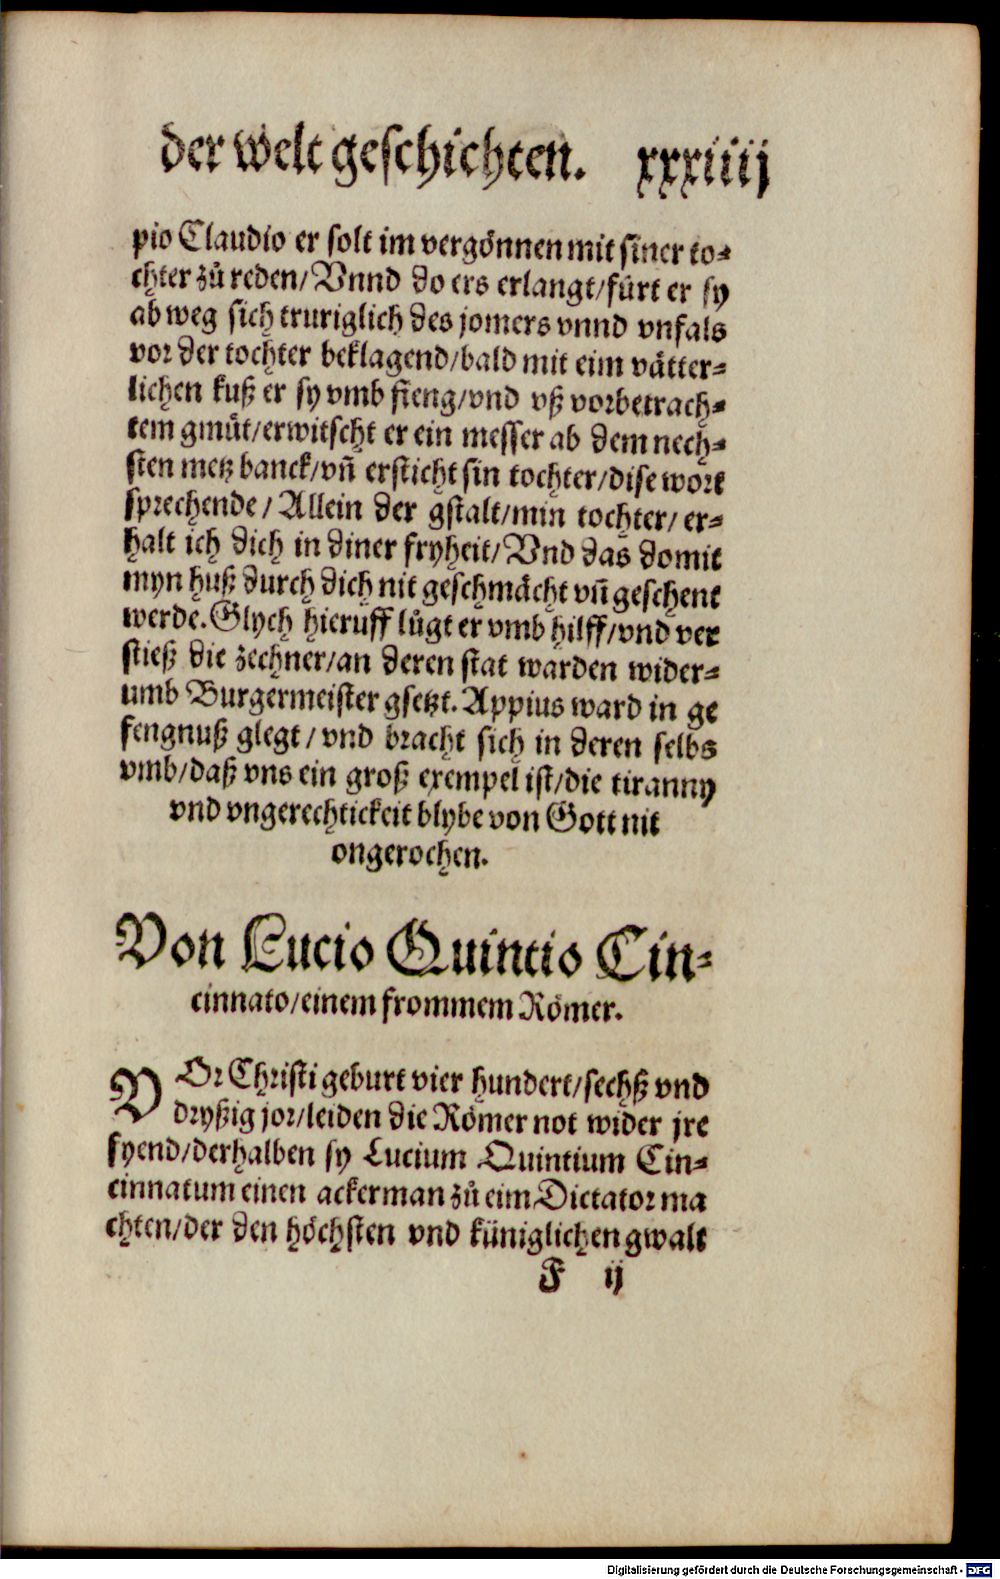 der welt geschichten. xxxiiij
pio Claudio er solt im vergönnen mit siner to⸗
chter zů reden/Vnnd do ers erlangt/fürt er sy
ab weg sich truriglich des jomers vnnd vnfals
vor der tochter beklagend/bald mit eim vätter⸗
lichen kuß er sy vmb fieng/vnd vß vorbetrach⸗
tem gmüt/erwitscht er ein messer ab dem nech⸗
sten metz banck/vñ ersticht sin tochter/dise wort
sprechende/Allein der gstalt/min tochter/er⸗
halt ich dich in diner fryheit/Vnd das domit
myn huß durch dich nit geschmächt vñ geschent
werde. Glych hieruff lůgt er vmb hilff/vnd ver
stieß die zechner/an deren stat warden wider⸗
umb Burgermeister gsetzt. Appius ward in ge
fengnuß glegt/vnd bracht sich in deren selbs
vmb/daß vns ein groß exempel ist/die tiranny
vnd vngerechtickeit blybe von Gott nit
ongerochen.
Von Lucio Quintio Cin⸗
cinnato/einem frommem Römer.
VOr Christi geburt vier hundert/sechß vnd
dryßig jor/leiden die Römer not wider jre
fyend/derhalben sy Lucium Quintium Cin⸗
cinnatum einen ackerman zů eim Dictator ma
chten/der den höchsten vnd küniglichen gwalt
F ij
Digitalisierung gefördert durch die Deutsche Forschungsgemeinschaft - DFG